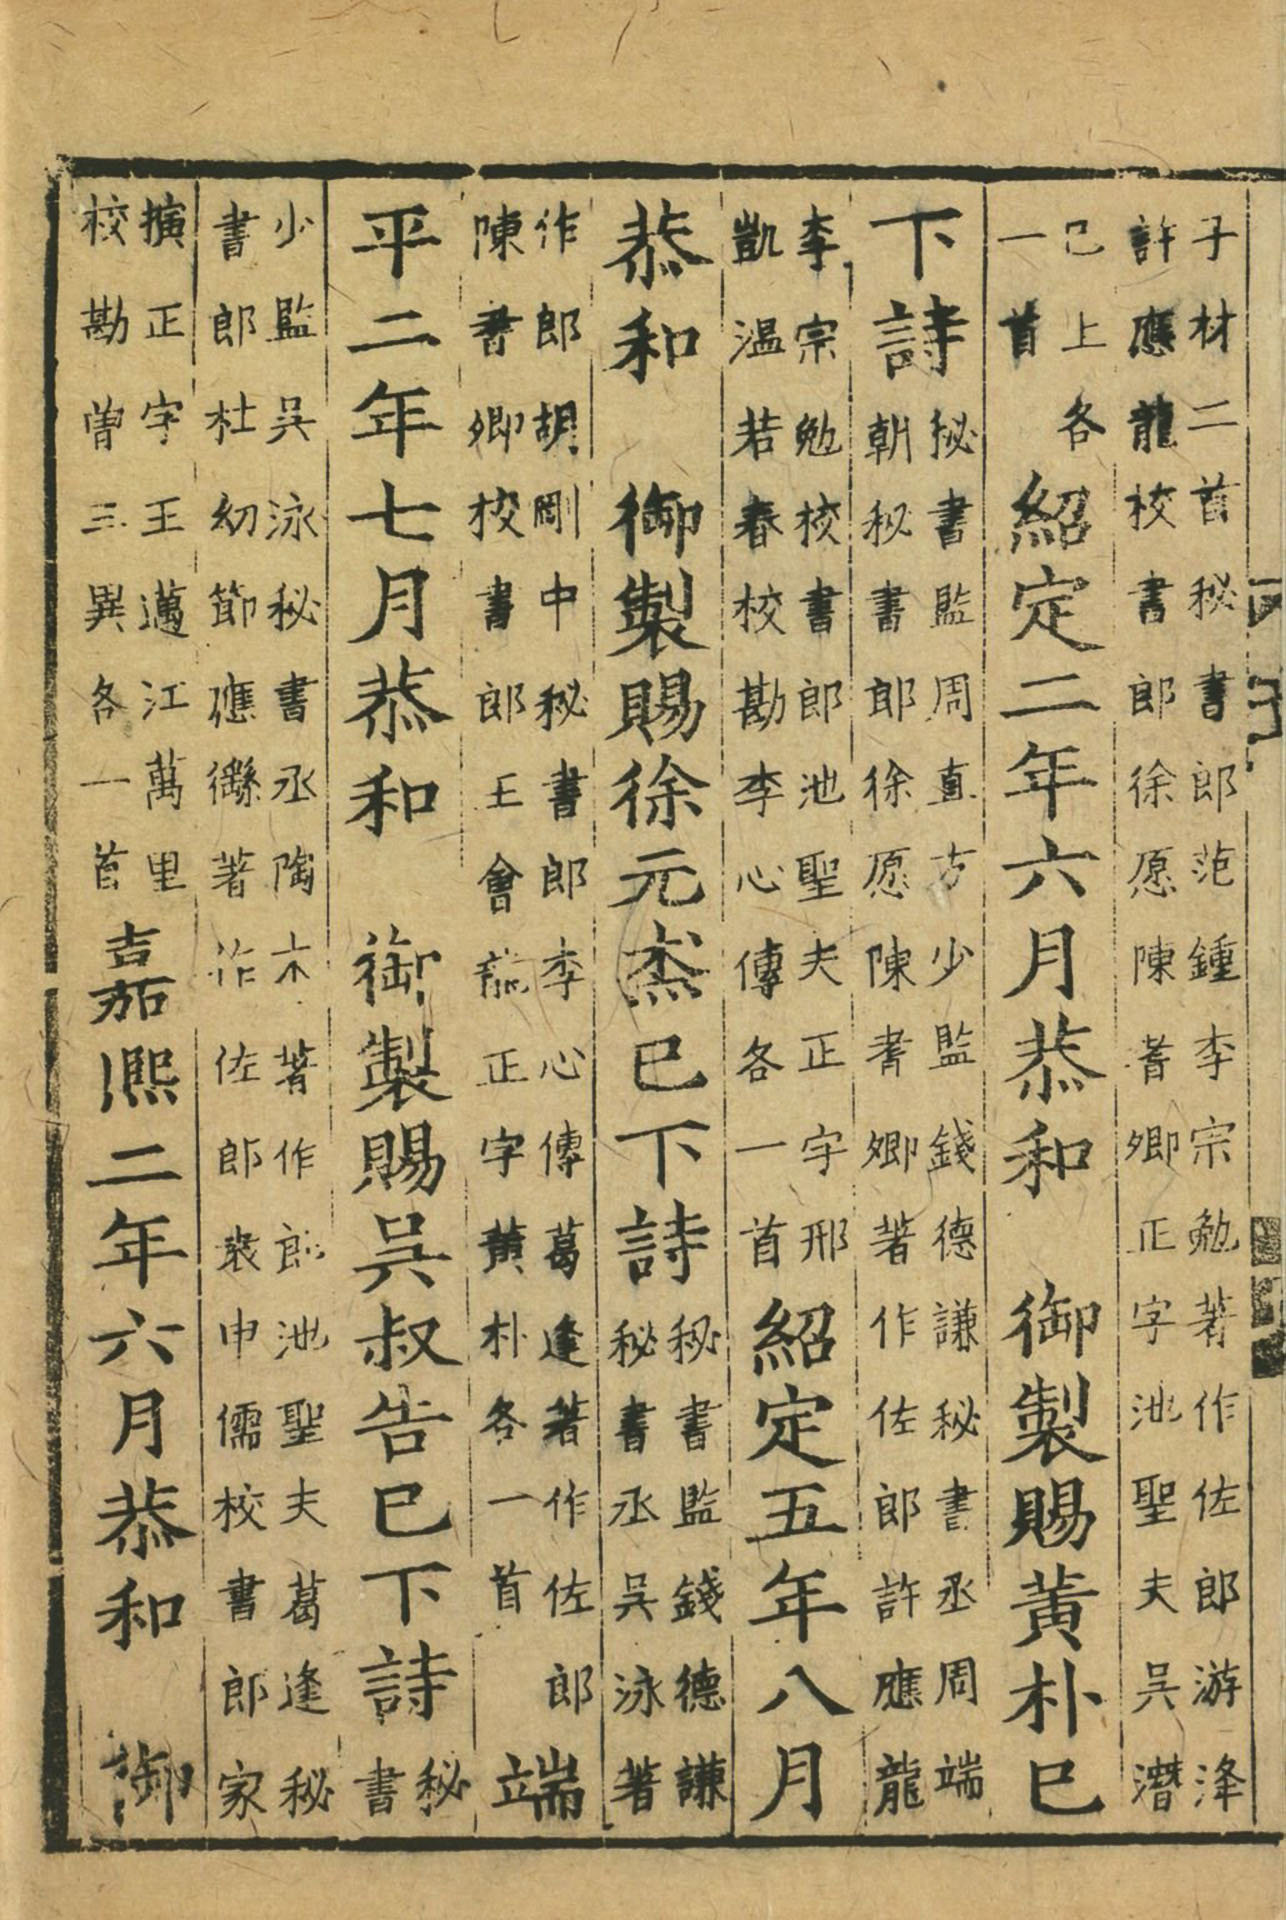 子材二首秘書郎范鍾李宗勉著作佐郎游洚
許應龍校書郎徐愿陳耆卿正字池聖夫吳潛
已上各
一首
紹定二年六月恭和　御製賜黃朴巳
下詩
秘書監周直方少監錢德謙秘書丞周端
朝秘書郎徐愿陳耆卿著作佐郎許應龍
李宗勉校書郎池聖夫正字邢
凱溫若春校勘李心傳各一首
紹定五年八月
恭和　御製賜徐元杰巳下詩
秘書監錢德謙
秘書丞吳泳著
作郎胡剛中秘書郎李心傳葛逢著作佐郎
陳耆卿校書郎王會龍正字黃朴各一首
端
平二年七月恭和　御製賜吳叔告巳下詩
秘
書
少監吳泳秘書丞陶木著作郎池聖夫葛逢秘
書郎杜幼節應㒡著作佐郎裴申儒校書郎家
㩇正字王邁江萬里
校勘曾三異各一首
嘉熙二年六月恭和　御